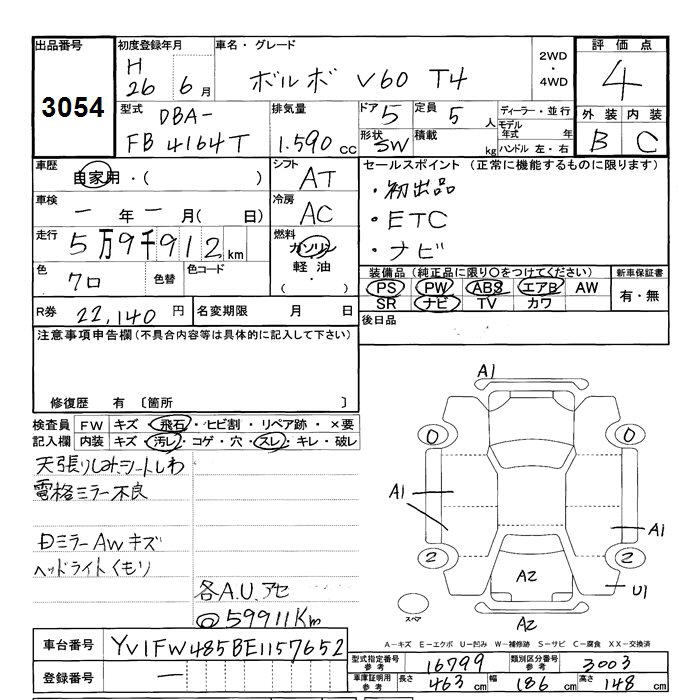 出品番号 初度登録年月 車名・グレード 2WD・4WD 評価点
3054 H 26 6月 ボルボ V60 T4 4
型式 DBA- 排気量 ドア 5 定員 5人 ディーラー・並行 外装 内装
FB4164T 1.590 cc 形状 SW 積載 kg モデル年式 年 B C
ハンドル 左・右
車歴 自家用・( ) シフト AT セールスポイント (正常に機能するものに限ります)
車検 一年一月( 日) 冷房 AC ・初出品
・ETC
走行 5万9千912km 燃料 ガソリン ・ナビ
軽油
・( )
色 クロ 色替 色コード 装備品 (純正品に限り○をつけてください) 新車保証書
PS PW ABS エアB AW 有・無
SR ナビ TV カワ
R券 22,140円 名変期限 月 日 後日品
注意事項申告欄 (不具合内容等は具体的に記入して下さい)
修復歴 有 〔箇所 〕
検査員 FW キズ・飛石・ヒビ割・リペア跡・×要
記入欄 内装 キズ・汚レ・コゲ・穴・スレ・キレ・破レ
天張りしみ、シートしわ
電格ミラー不良
日ミラーAWキズ
ヘッドライトくもり
各A.U.アセ
@59911Km
A1
0 0
A1 A1
2 2
A2 U1
スペア A2
A-キズ E-エクボ U-凹み W-補修跡 S-サビ C-腐食 XX-交換済
車台番号 YV1FW485BE1157652
登録番号 一
型式指定番号 参考 16799 類別区分番号 参考 3003
車庫証明用 参考 長さ 463cm 幅 186cm 高さ 148cm